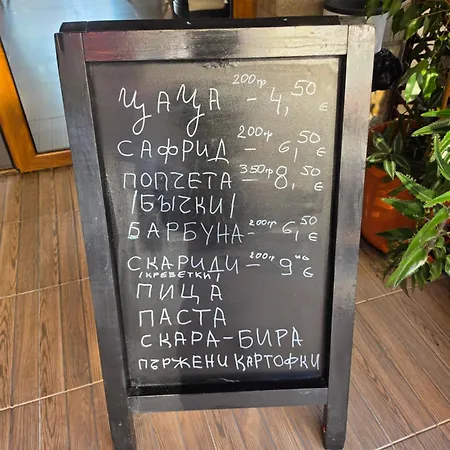 ЦАЦА 200гр - 4,50 €
САФРИД 200гр - 6,50 €
ПОПЧЕТА 350гр - 8,50 €
/БЫЧКИ/
БАРБУНА - 200гр 6,50 €
СКАРИДИ - 200гр 9,00 €
/КРЕВЕТКИ/
ПИЦА
ПАСТА
СКАРА-БИРА
ПЪРЖЕНИ КАРТОФКИ